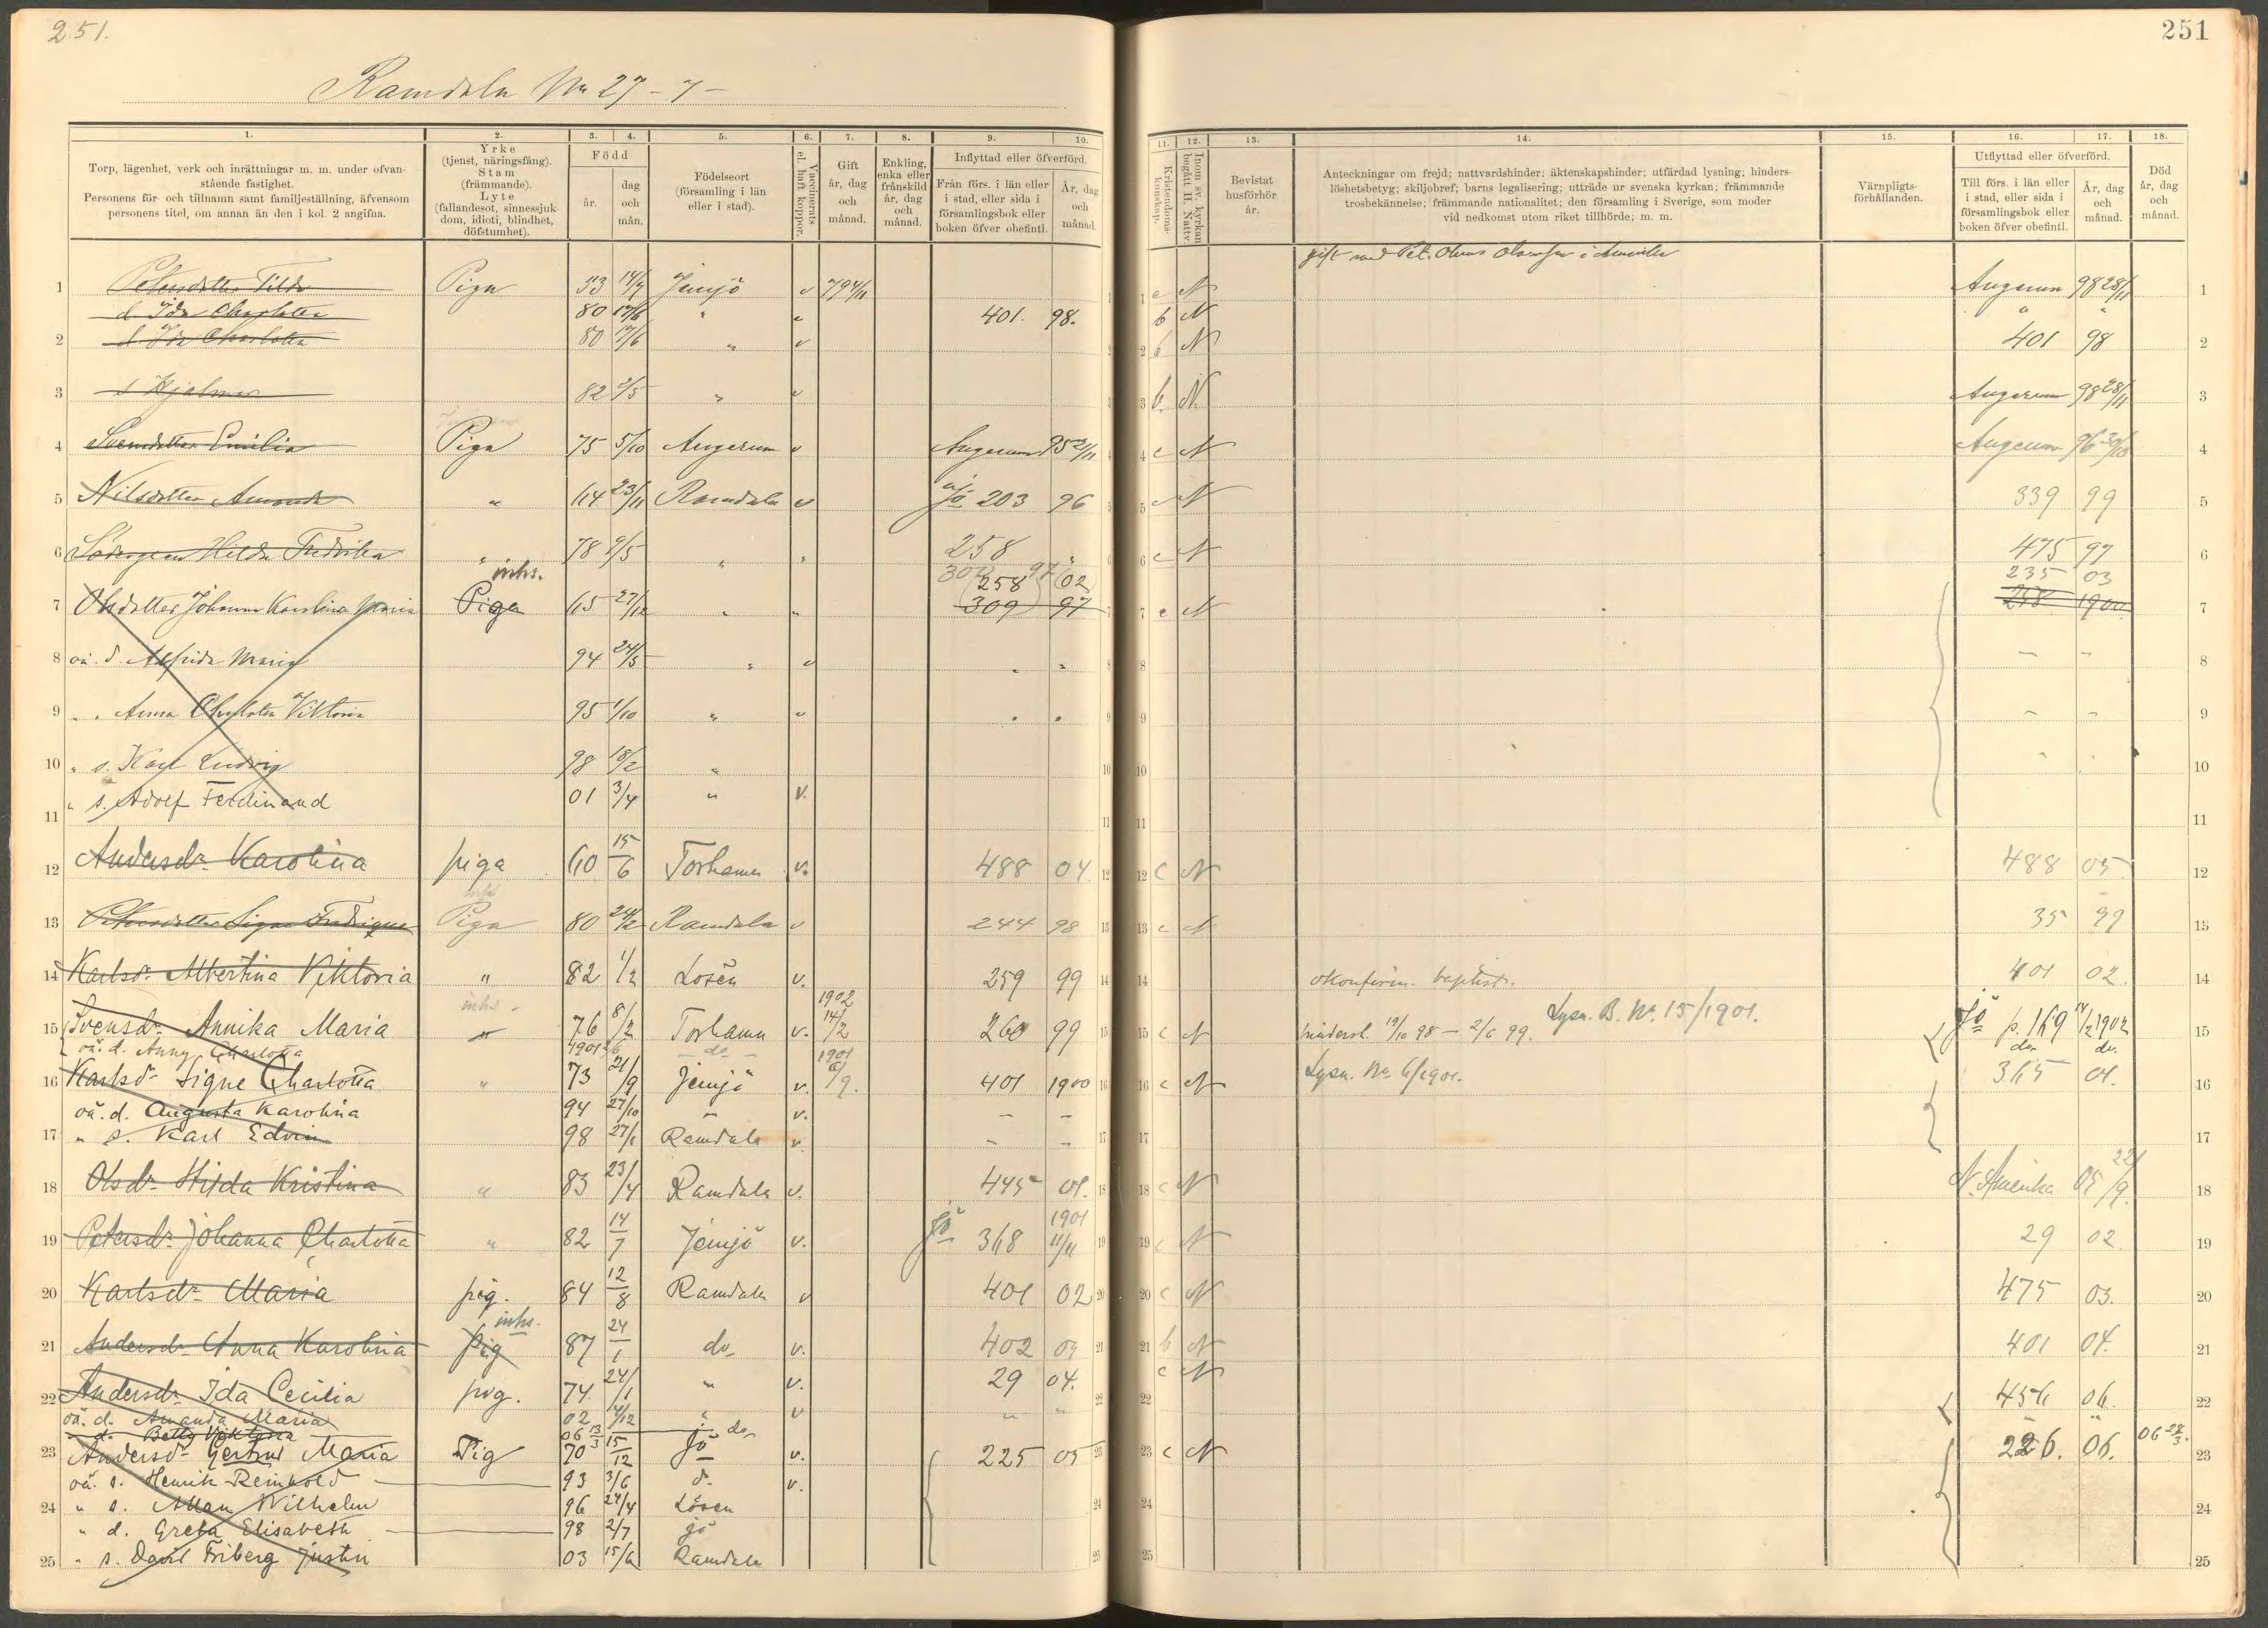 251.
251
Ramdala No 27 - 7 -
1. 2. 3. 4. 5. 6. 7. 8. 9. 10.
11. 12. 13. 14. 15. 16. 17. 18.
Torp, lägenhet, verk och inrättningar m. m. under ofvan-
stående fastighet.
Personens för- och tillnamn samt familjeställning, äfvensom
personens titel, om annan än den i kol. 2 angifna.
Yrke
(tjenst, näringsfång).
Stam
(främmande).
Lyte
(fallandesot, sinnessjuk-
dom, idioti, blindhet,
döfstumhet).
Född
år.
dag
och
mån.
Födelseort
(församling i län
eller i stad).
Vaccinerats
el. haft koppor.
Gift
år, dag
och
månad.
Enkling,
enka eller
frånskild
år, dag
och
månad.
Inflyttad eller öfverförd.
Från förs. i län eller
i stad, eller sida i
församlingsbok eller
boken öfver obefintl.
År, dag
och
månad.
Kristendoms-
kunskap.
Inom sv. kyrkan
begått H. Nattv.
Bevistat
husförhör
år.
Anteckningar om frejd; nattvardshinder; äktenskapshinder; utfärdad lysning; hinders-
löshetsbetyg; skiljobref; barns legalisering; utträde ur svenska kyrkan; främmande
trosbekännelse; främmande nationalitet; den församling i Sverige, som moder
vid nedkomst utom riket tillhörde; m. m.
Värnpligts-
förhållanden.
Utflyttad eller öfverförd.
Till förs. i län eller
i stad, eller sida i
församlingsbok eller
boken öfver obefintl.
År, dag
och
månad.
Död
år, dag
och
månad.
gift med Pet. i Amerika
1 Petersdotter Tilda Piga 53 14/7 Jemjö v c N Augerum 98 28/11 1
d. Ida Charlotta 80 17/6 " 401. 98. b N " "
2 d. Ida Charlotta 80 17/6 " v 2 b N 401 98 2
3 s Hjalmar 82 2/5 " v 3 b. N. Augerum 98 28/11 3
4 Svensdotter Emilia Piga 75 5/10 Augerum v Augerum 95 2/11 4 c N Augerum 96 4
5 Nilsdotter Amanda " 64 23/11 Ramdala v Jö 203 96 5 c N 339 99 5
6 Hilda Fredrika " 78 9/5 " " 258 " 6 c N 475 97 6
inhs. 258 02 235 03
7 Olsdotter Johanna Karolina Maria Piga 65 27/12 " " 309 97 7 c N 258 1900 7
8 oä. d. Alfrida Maria 94 24/5 " v " " 8 - - 8
9 " " Anna Charlotta Viktoria 95 1/10 " v " " 9 - - 9
10 " s. Karl Ludvig 98 18/2 " 10 10 " " 10
11 " s. Adolf Ferdinand 01 3/4 " v. 11 11 11
12 Andersdr Karolina piga 60 15/6 Torhamn v. 488 04. 12 12 c N 488 05 12
13 Petersdotter Signe Fredrique Piga 80 24/2 Ramdala v 244 98 13 13 c N 35 99 13
14 Karlsdr Albertina Viktoria " 82 1/2 Lösen v. 259 99 14 14 okonfirm. baptist. 401 02. 14
inhs 1902 Lysn. B. No. 15/1901.
15 Svensdr Annika Maria " 76 8/2 Torhamn v. 14/2 260 99 15 15 c N hindersl. 19/10 98 - 2/6 99. Jö p. 169 14/2 1902 15
oä. d. Anny Charlotta 1901 - do - 1901 do. do.
16 Karlsdr Signe Charlotta " 73 21/9 Jemjö v. 401 1900 16 16 c N Lysn. No 6/1901. 365 01. 16
oä. d. Augusta Karolina 94 27/10 " v. - -
17 " s. Karl Edvin 98 27/1 Ramdala v. - - 17 17 17
18 Olsdr Hilda Kristina " 83 23/4 Ramdala v. 445 01. 18 18 c N N. Amerika 05 22/9. 18
19 Petersdr Johanna Charlotta " 82 14/7 Jemjö v. Jö 368 1901 11/11 19 19 c N 29 02 19
20 Karlsdr Maria pig. 84 12/8 Ramdala v 401 02 20 20 c N 475 03. 20
inhs.
21 Andersdr Anna Karolina pig 87 24/1 do v. 402 03 21 21 b N 401 04. 21
22 Andersdr Ida Cecilia pig. 74. 24/1 " v. 29 04. 22 22 c N 456 06. 22
oä. d. Amanda Maria 02 14/12 " v " " " "
" d. Betty Viktoria 06 13/3 do 06 28/3.
23 Andersdr Gertrud Maria Pig 70 15/12 Jö v. 225 05 23 23 c N 226. 06. 23
oä. s. Henrik Reinhold 93 3/6 d. v.
24 " s. Allan Wilhelm 96 24/4 Lösen 24 24 24
" d. Greta Elisabeth 98 2/7 Jö
25 " s. David Friberg Justin 03 15/6 Ramdala 25 25 25